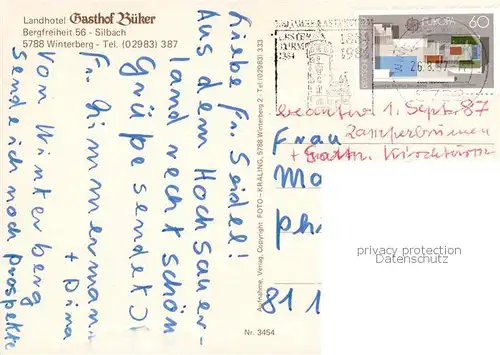 Landhotel Gasthof Büker
Bergfreiheit 56 - Silbach
5788 Winterberg - Tel. (02983) 387
Liebe Fr. Seidel!
Aus dem Hochsauer-
land recht schön
Grüße sendet
Fr. Zimmermann
+ Dina
Von Winterberg
sende ich noch Prospekte
Aufnahme, Verlag, Copyright: FOTO - KRÄLING, 5788 Winterberg 2 - Tel. (02983) 333
Nr. 3454
EUROPA 60
26.8.87
beantw. 1. Sept. 87
+ Kirchturm
Frau
Mo
ph
81 1
privacy protection
Datenschutz